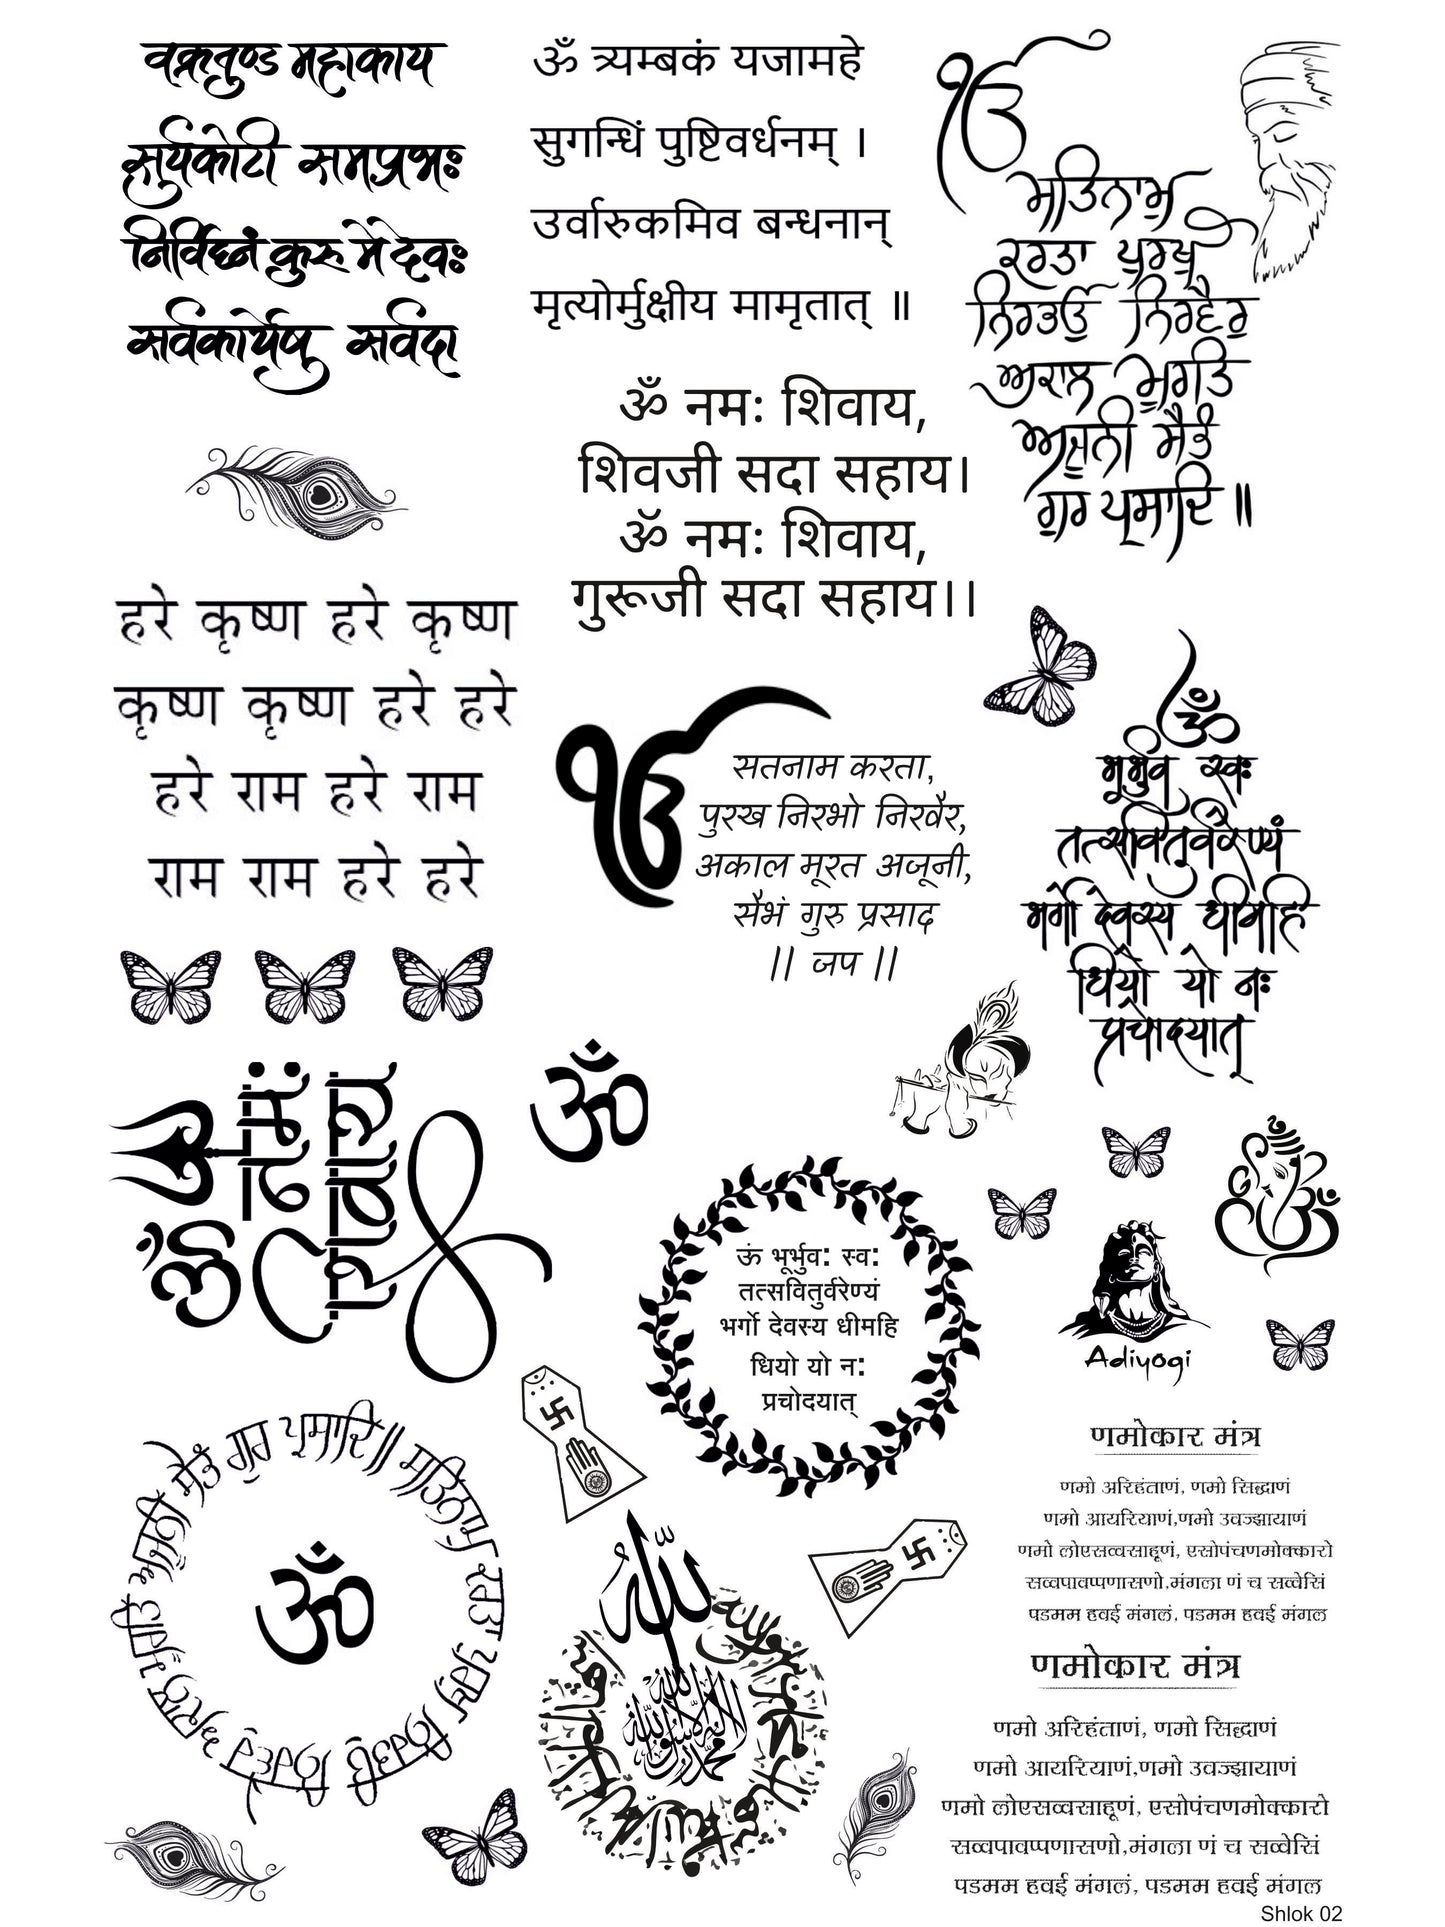 वक्रतुण्ड महाकाय
सुर्यकोटी समप्रभः
निर्विघ्नं कुरु मे देवः
सर्वकार्येषु सर्वदा
ॐ त्र्यम्बकं यजामहे
सुगन्धिं पुष्टिवर्धनम् ।
उर्वारुकमिव बन्धनान्
मृत्योर्मुक्षीय मामृतात् ॥
ੴ
ਸਤਿਨਾਮੁ
ਕਰਤਾ ਪੁਰਖੁ
ਨਿਰਭਉ ਨਿਰਵੈਰੁ
ਅਕਾਲ ਮੂਰਤਿ
ਅਜੂਨੀ ਸੈਭੰ
ਗੁਰ ਪ੍ਰਸਾਦਿ ॥
ॐ नमः शिवाय,
शिवजी सदा सहाय।
ॐ नमः शिवाय,
गुरूजी सदा सहाय।।
हरे कृष्ण हरे कृष्ण
कृष्ण कृष्ण हरे हरे
हरे राम हरे राम
राम राम हरे हरे
ੴ
सतनाम करता,
पुरख निरभो निरवैर,
अकाल मूरत अजूनी,
सैभं गुरु प्रसाद
|| जप ||
ॐ
भूर्भुव स्वः
तत्सवितुर्वरेण्यं
भर्गो देवस्य धीमहि
धियो यो नः
प्रचोदयात्
ॐ नमः
शिवाय
ॐ
ऊं भूर्भुवः स्वः
तत्सवितुर्वरेण्यं
भर्गो देवस्य धीमहि
धियो यो नः
प्रचोदयात्
Adiyogi
ਸਤਿਨਾਮੁ ਕਰਤਾ ਪੁਰਖੁ ਨਿਰਭਉ ਨਿਰਵੈਰੁ ਅਕਾਲ ਮੂਰਤਿ ਅਜੂਨੀ ਸੈਭੰ ਗੁਰ ਪ੍ਰਸਾਦਿ ॥
ॐ
الله
لا اله الا الله محمد رسول الله
णमोकार मंत्र
णमो अरिहंताणं, णमो सिद्धाणं
णमो आयरियाणं,णमो उवज्झायाणं
णमो लोएसव्वसाहूणं, एसोपंचणमोक्कारो
सव्वपावप्पणासणो,मंगला णं च सव्वेसिं
पडमम हवई मंगलं, पडमम हवई मंगल
णमोकार मंत्र
णमो अरिहंताणं, णमो सिद्धाणं
णमो आयरियाणं,णमो उवज्झायाणं
णमो लोएसव्वसाहूणं, एसोपंचणमोक्कारो
सव्वपावप्पणासणो,मंगला णं च सव्वेसिं
पडमम हवई मंगलं, पडमम हवई मंगल
Shlok 02